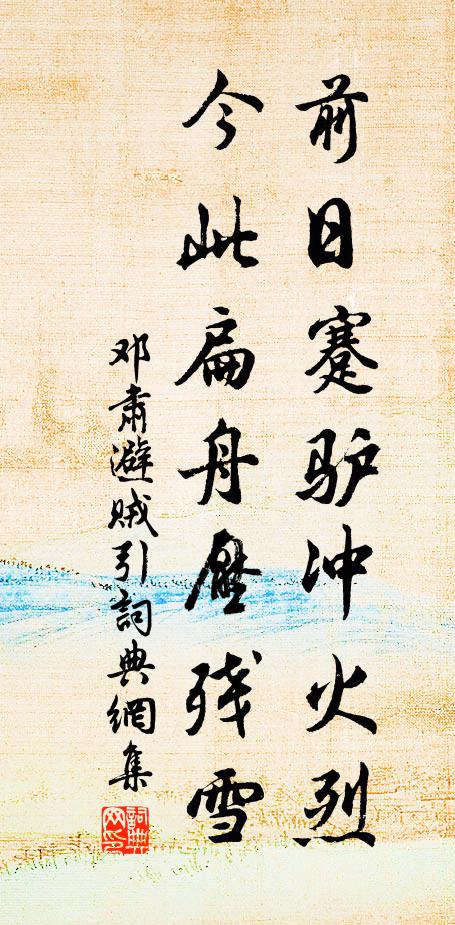 前日蹇驴冲火烈
今此扁舟壓残雪
邓肃避贼引詞典網集
詞典網印